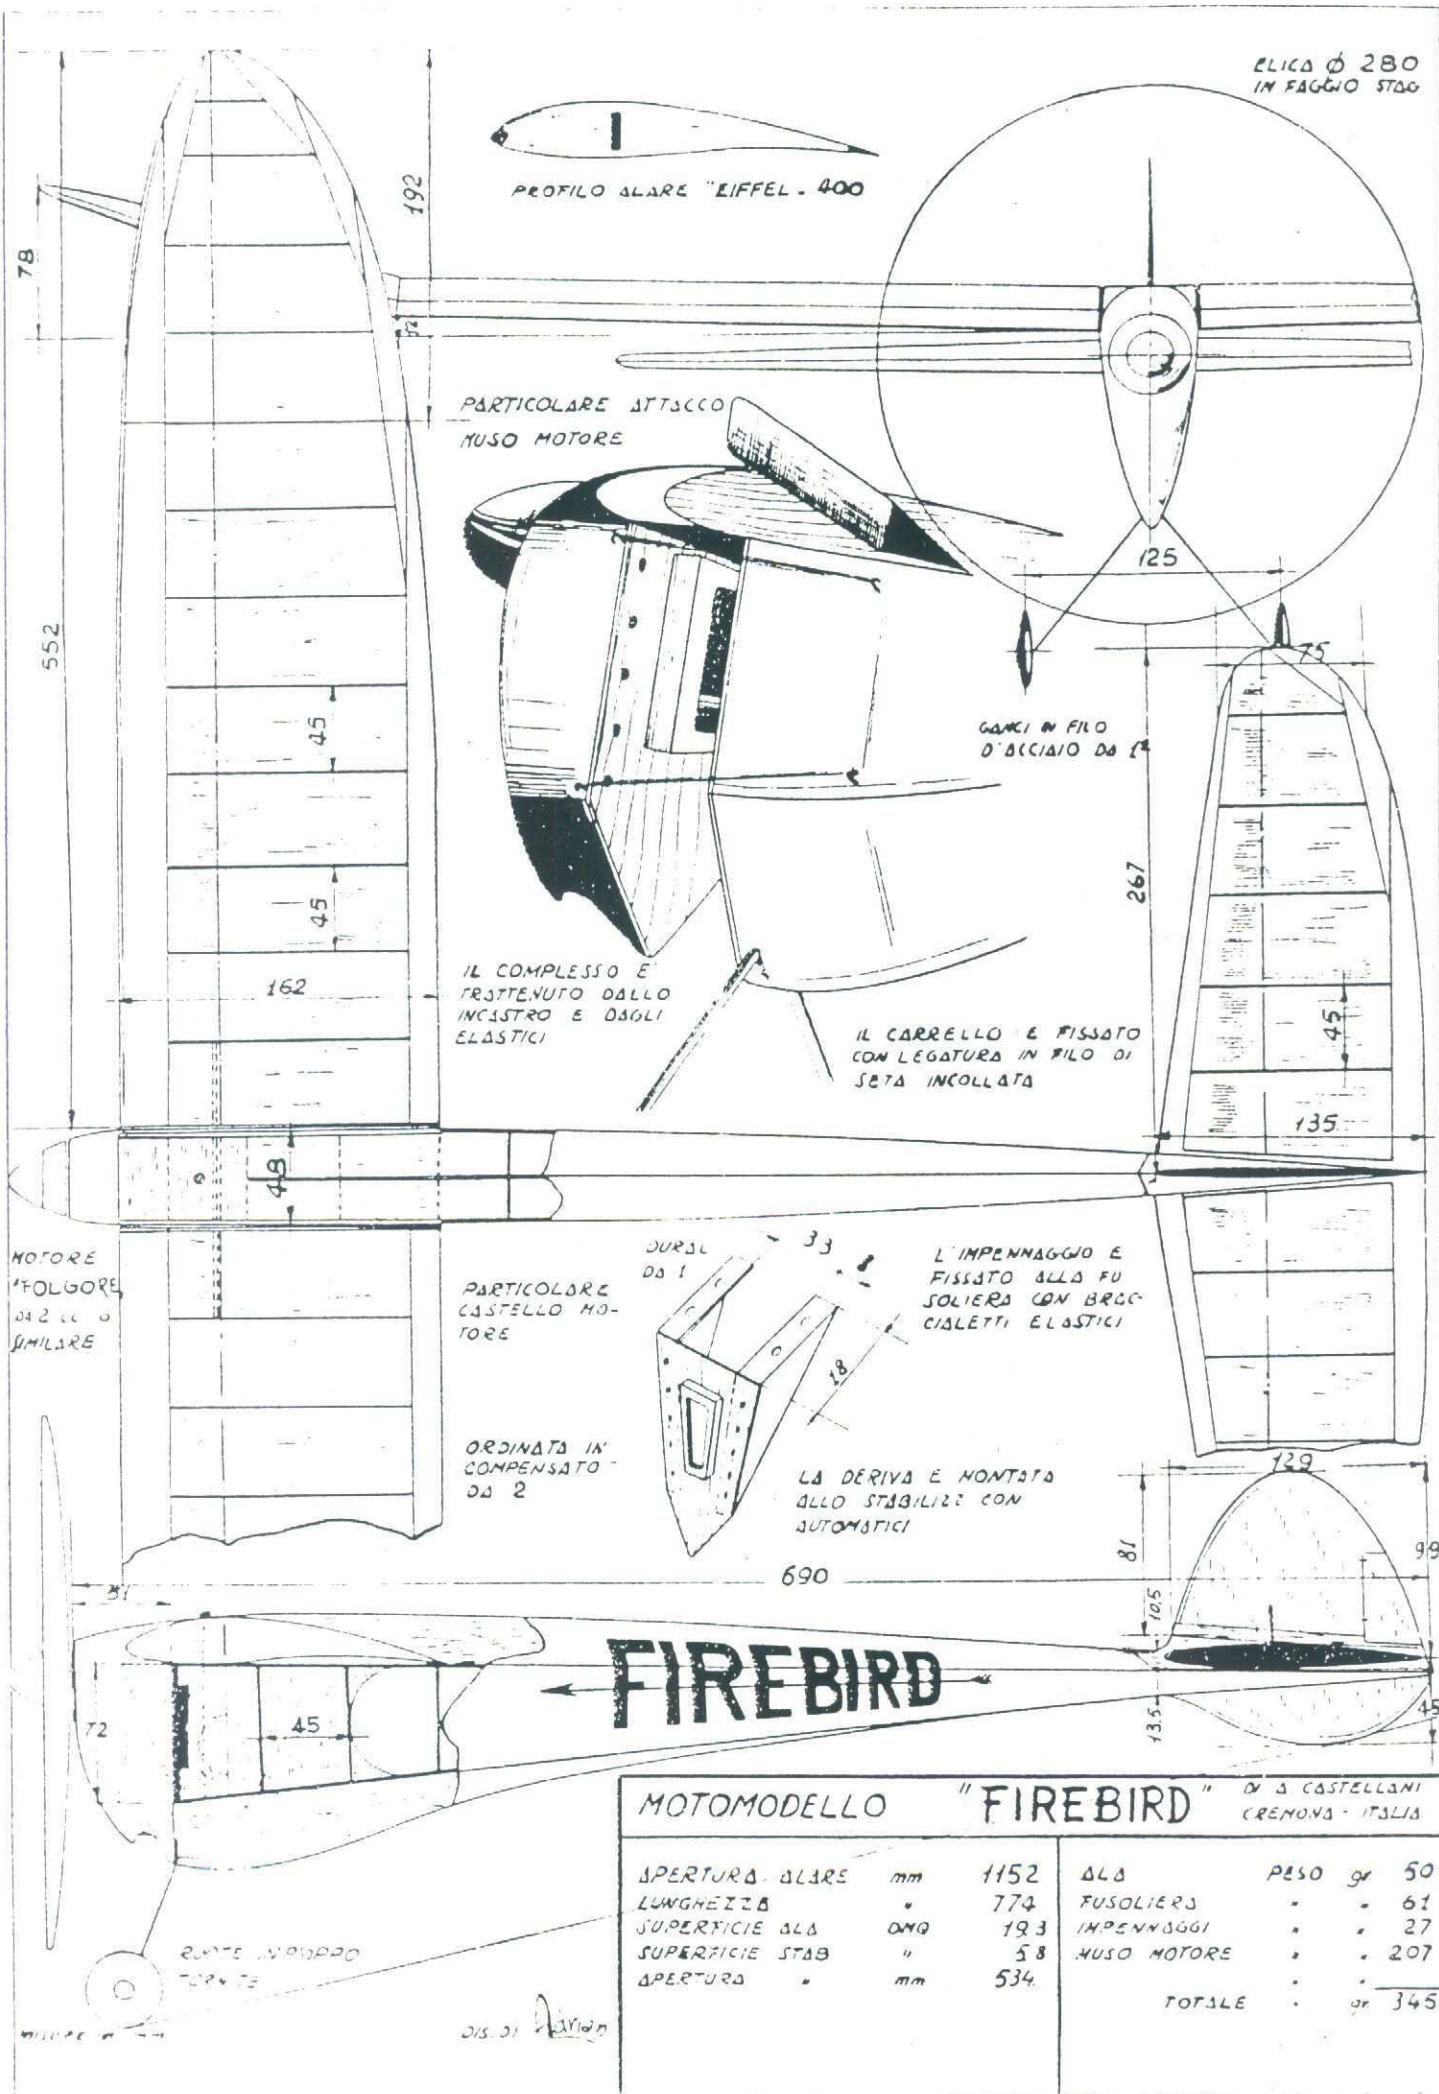 ELICA Ø 280
IN FAGGIO STAG
PROFILO ALARE "EIFFEL - 400
192
78
52
PARTICOLARE ATTACCO
MUSO MOTORE
125
75
552
45
GANCI IN FILO
D'ACCIAIO DA 1
267
45
162
IL COMPLESSO E'
TRATTENUTO DALLO
INCASTRO E DAGLI
ELASTICI
IL CARRELLO E FISSATO
CON LEGATURA IN FILO DI
SETA INCOLLATA
45
135
48
MOTORE
"FOLGORE
DA 2 cc o
SIMILARE
PARTICOLARE
CASTELLO MO-
TORE
DURAL
DA 1
33
8
18
L'IMPENNAGGIO E
FISSATO ALLA FU
SOLIERA CON BRAC-
CIALETTI ELASTICI
ORDINATA IN
COMPENSATO
DA 2
LA DERIVA E MONTATA
ALLO STABILIZZ CON
AUTOMATICI
129
81
99
690
81
10,5
FIREBIRD
72
45
13.5
45
MOTOMODELLO "FIREBIRD" DI A CASTELLANI
CREMONA - ITALIA
APERTURA ALARE mm 1152
LUNGHEZZA " 774
SUPERFICIE ALA DMQ 19.3
SUPERFICIE STAB " 5.8
APERTURA " mm 534
ALA PESO gr 50
FUSOLIERA " " 61
IMPENNAGGI " " 27
MUSO MOTORE " " 207
TOTALE " gr. 345
RUOTE IN PIOPPO
TORNITE
MISURE IN mm
DIS. DI